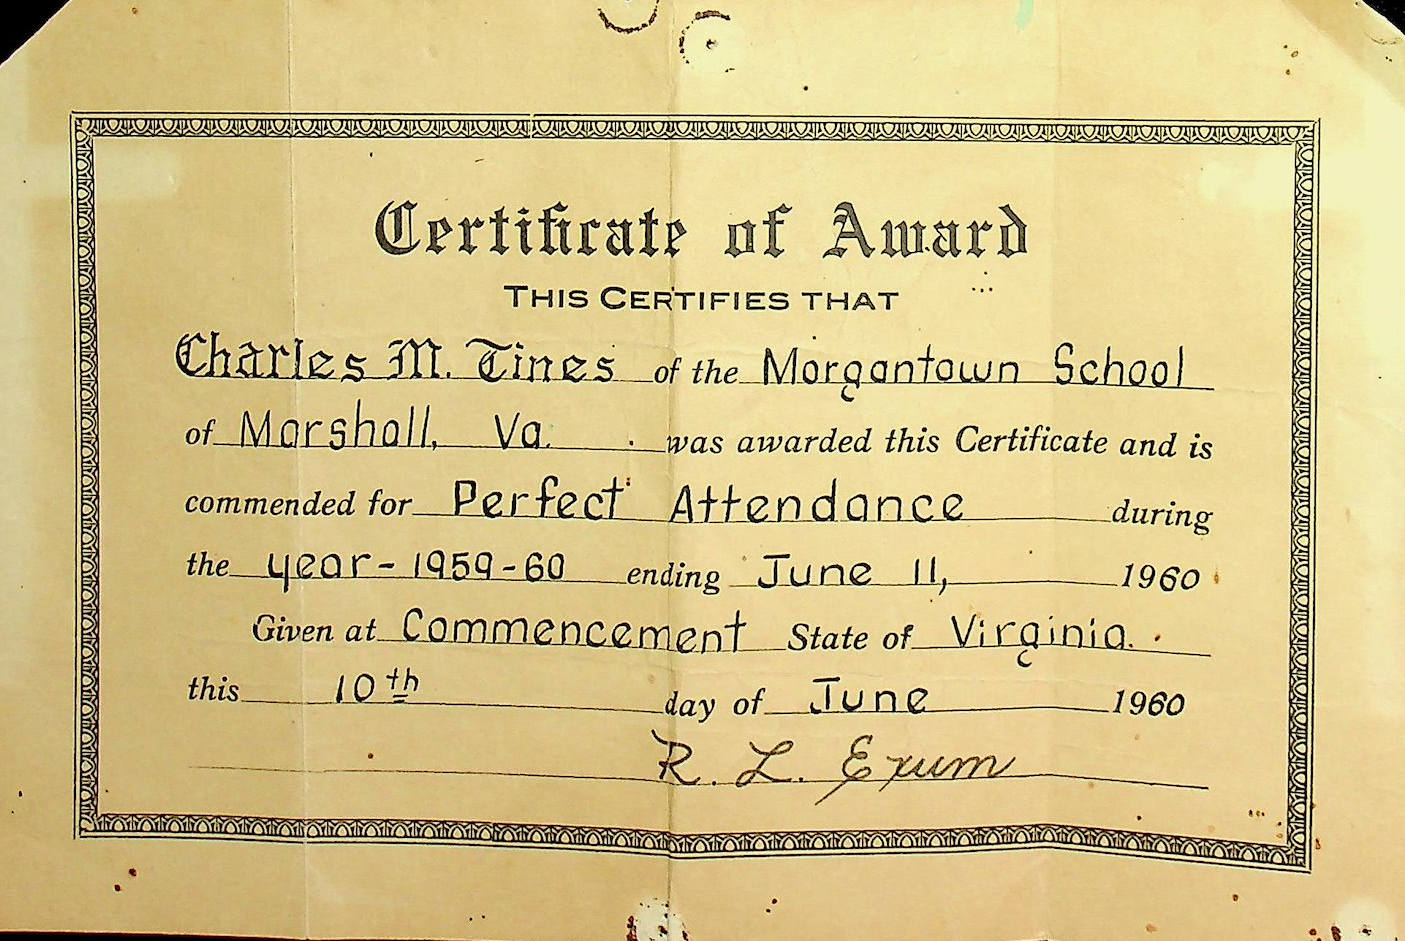 Certificate of Award
THIS CERTIFIES THAT
Charles M. Tines of the Morgantown School
of Marshall, Va. was awarded this Certificate and is
commended for Perfect Attendance during
the year-1959-60 ending June 11, 1960
Given at Commencement State of Virginia.
this 10th day of June 1960
R. L. Exum